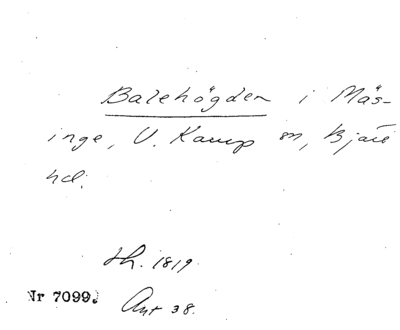 Balehögden i Mäs-
inge, V. Karup sn, Bjäre
hd.
th. 1819
Nr 7099.
Ant 38.